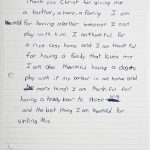 Thank you Christ for giving me
a brother, a home, a family. I am
thankful for having a brother because I can
play with him. I am thankful for
a nice cosy home and I am thankful
for having a family that loves me
I am also thankful having a dog to
play with if my brother is not home and
more things I am thankful for
having a teddy bear to sleep
and the best thing I am thankful for
writing this